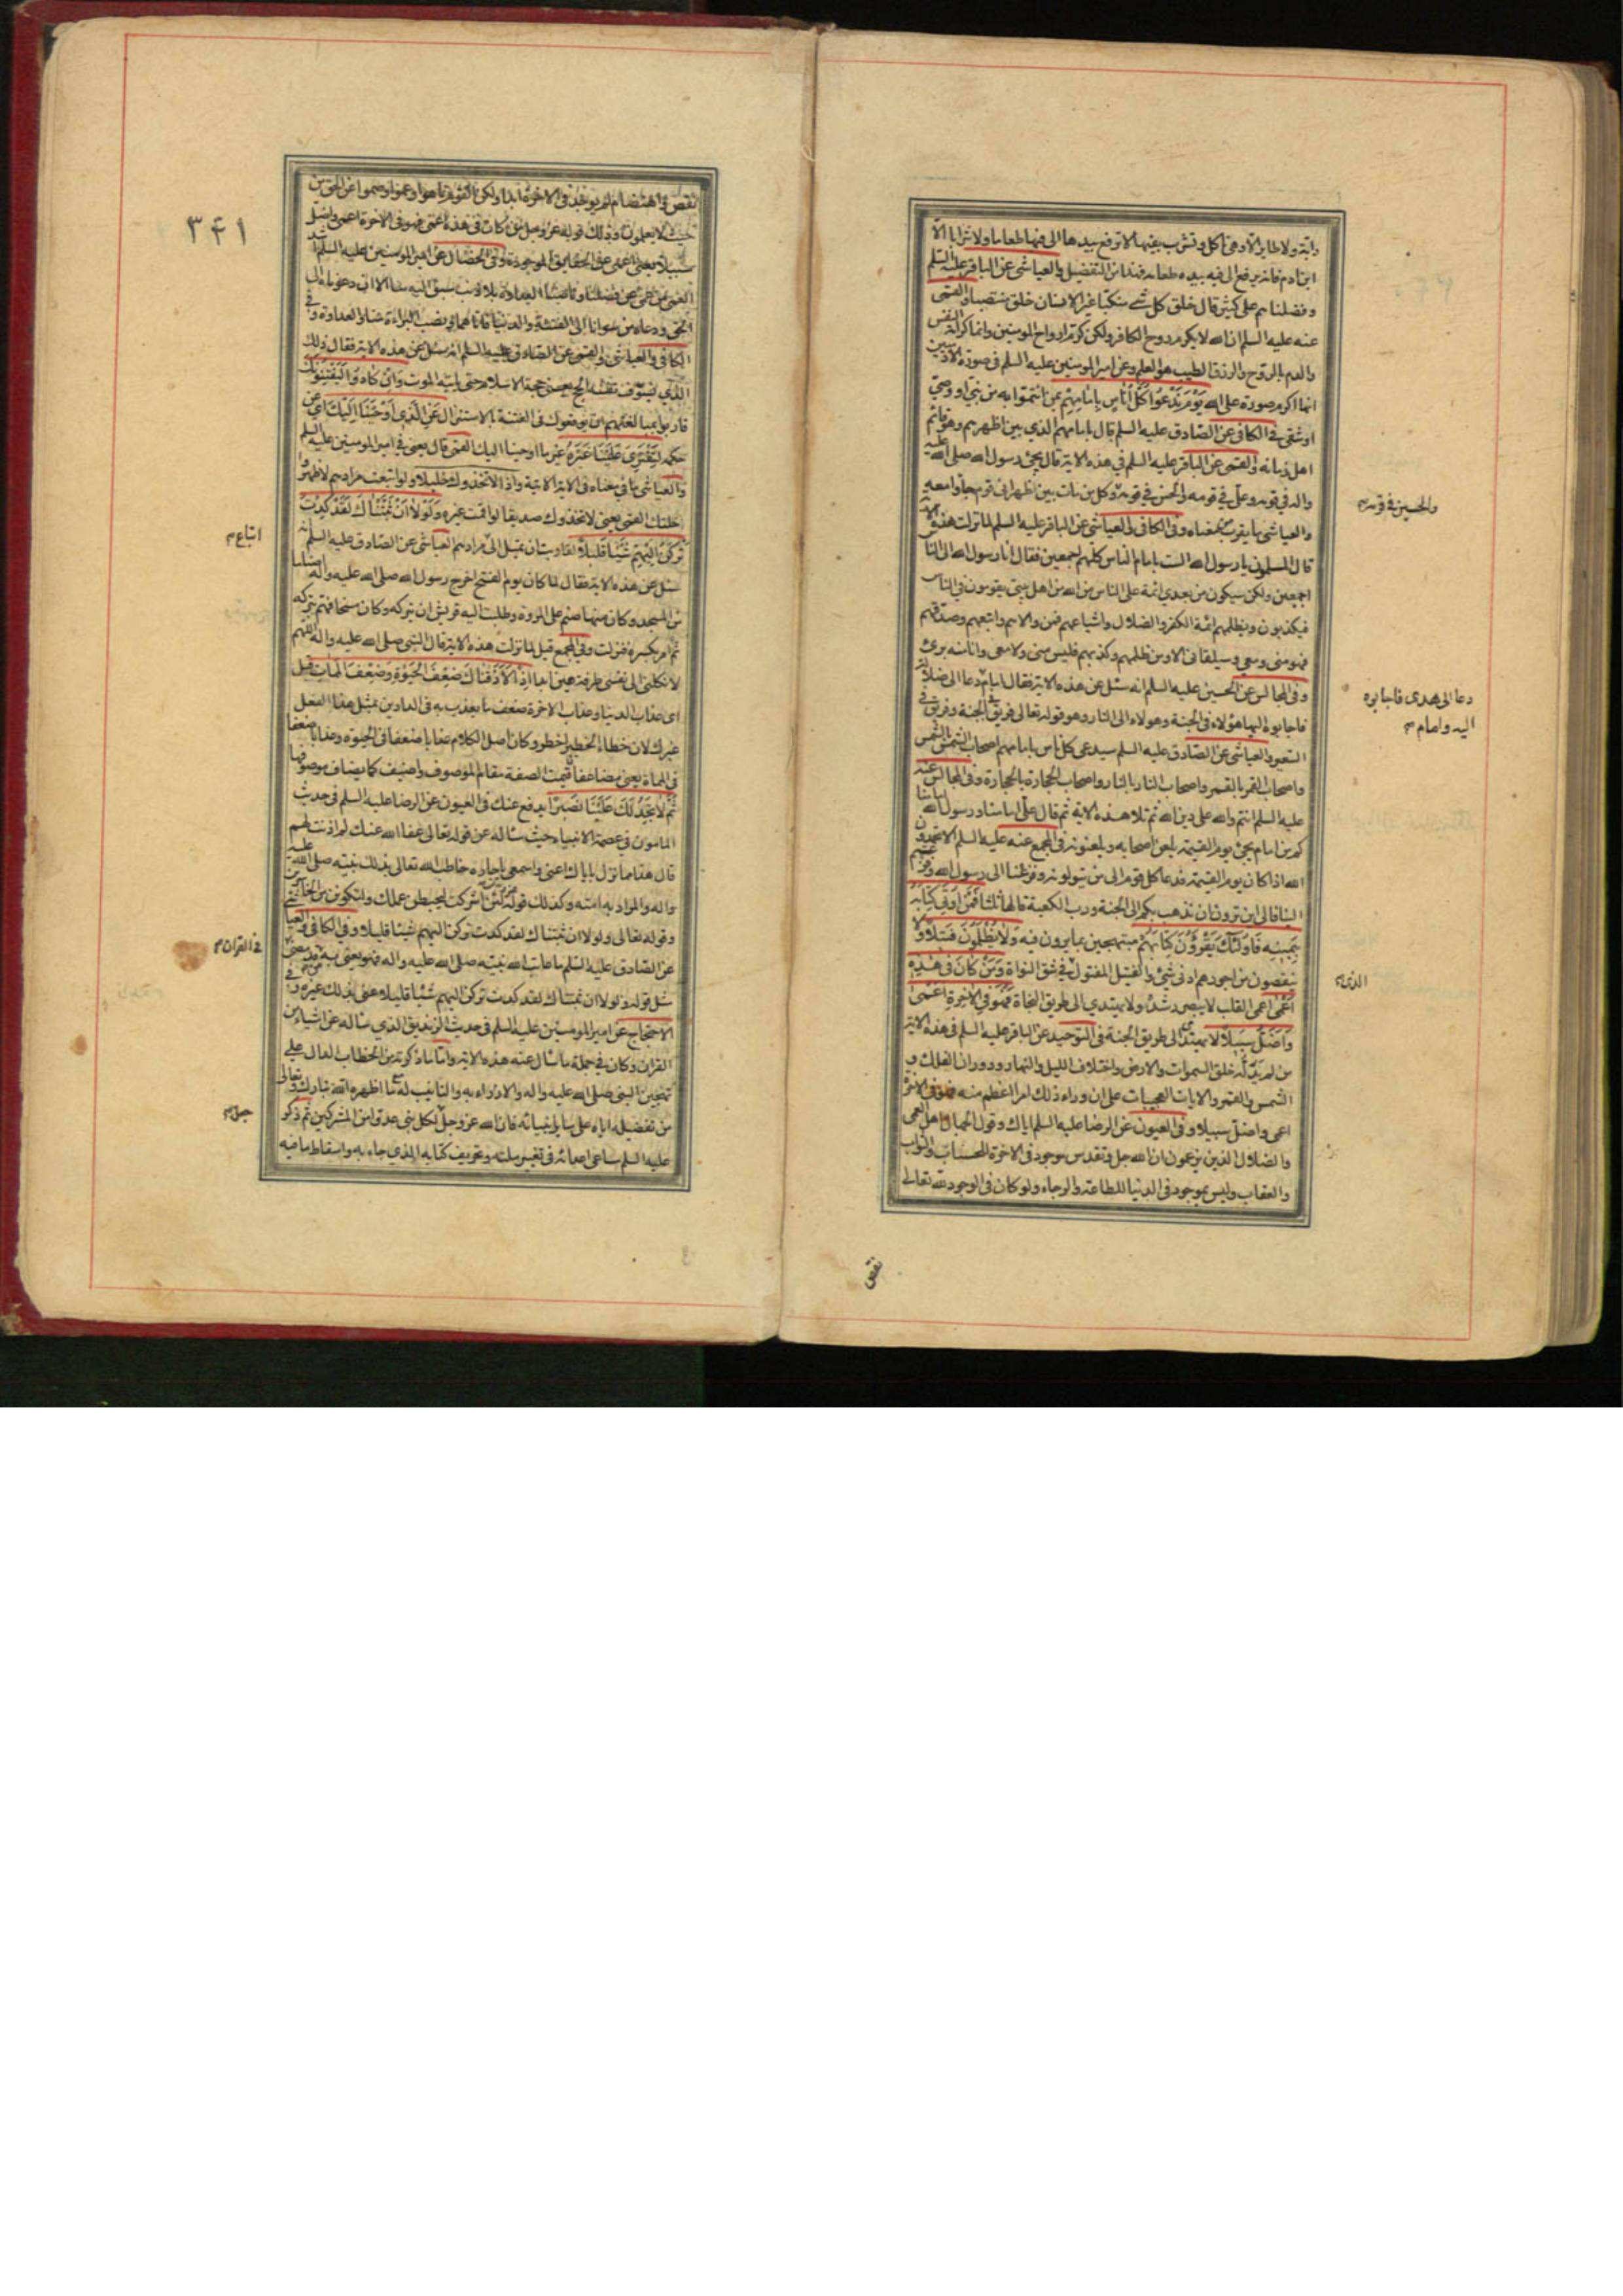 دابة ولا طاير الا وهي تاكل وتشرب بفيها لا ترفع بيدها الى فيها طعاما ولا شرابا الا
ابن ادم فانه يرفع الى فيه بيده طعامه فهذا من التفضيل والعياشي عن الباقر عليه السلم
وفضلناهم على كثير قال خلق كل شيء منكبا غير الانسان خلق منتصبا والقمي
عنه عليه السلم ان الله لا يكرم روح الكافر ولكن كرم ارواح المومنين وانما كرامة النفس
والدم بالروح والرزق الطيب هو العلم وعن امير المومنين عليه السلم في صورة الادميين
انها اكرم صورة على الله يَوْمَ نَدْعُوا كُلَّ أُنَاسٍ بِإِمَامِهِمْ بمن ائتموا به من نبي او وصي
او شقي في الكافي عن الصادق عليه السلم قال بامامهم الذي بين اظهرهم وهو قائم
اهل زمانه والقمي عن الباقر عليه السلم في هذه الاية قال يجيء رسول الله صلى الله عليه
واله في قومه وعلي في قومه والحسن في قومه وكل من مات بين اظهر اني قوم جاوا معه
والعياشي ما يقرب من معناه وفي الكافي والعياشي عن الباقر عليه السلم لما نزلت هذه الاية
قال المسلمون يا رسول الله الست بامام الناس كلهم اجمعين فقال انا رسول الله الى الناس
اجمعين ولكن سيكون من بعدي ائمة على الناس من الله من اهل بيتي يقومون في الناس
فيكذبون ويظلمهم ائمة الكفر والضلال واشياعهم فمن والاهم واتبعهم وصدقهم
فهو مني ومعي وسيلقاني الا ومن ظلمهم وكذبهم فليس مني ولا معي وانا منه بريء
وفي المجالس عن الحسين عليه السلم انه سئل عن هذه الاية فقال امام دعا الى ضلالة
فاجابوه اليها هؤلاء في الجنة وهولاء الى النار وهو قوله تعالى فريق في الجنة وفريق في
السعير والعياشي عن الصادق عليه السلم سيدعى كل اناس بامامهم اصحاب الشمس بالشمس
واصحاب القمر بالقمر واصحاب النار بالنار واصحاب الحجارة بالحجارة وفي المجالس عنه
عليه السلم انتم والله على دين الله ثم تلا هذه الاية ثم قال علي امامنا ورسول الله امامنا
كم من امام يجيء يوم القيمة يلعن اصحابه ويلعنونه في المجمع عنه عليه السلم الا تحمدون
الله اذا كان يوم القيمة فدعا كل قوم الى من يتولونه وفزعنا الى رسول الله وفزعتم
الينا فالى اين ترون ان نذهب بكم الى الجنة ورب الكعبة قالها ثلثا فَمَنْ أُوتِيَ كِتَابَهُ
بِيَمِينِهِ فَأُولَئِكَ يَقْرَؤُنَ كِتَابَهُمْ مبتهجين بما يرون فيه وَلَا يُظْلَمُونَ فَتِيلًا ولا
ينقصون من اجورهم ادنى شيء والفتيل المفتول في شق النواة وَمَنْ كَانَ فِي هَذِهِ
أَعْمَى اعمى القلب لا يبصر رشده ولا يهتدي الى طريق النجاة فَهُوَ فِي الْآخِرَةِ أَعْمَى
وَأَضَلُّ سَبِيلًا لا يهتدي الى طريق الجنة في التوحيد عن الباقر عليه السلم في هذه الاية
من لم يدله خلق السموات والارض واختلاف الليل والنهار ودوران الفلك و
الشمس والقمر والايات العجيبات على ان وراء ذلك امرا اعظم منه فهو في الاخرة
اعمى واضل سبيلا وفي العيون عن الرضا عليه السلم اياك وقول الجهال اهل العمى
والضلال الذين يزعمون ان الله جل وتقدس موجود في الاخرة للحساب والثواب
والعقاب وليس بموجود في الدنيا للطاعة والرجاء ولو كان في الوجود لله تعالى
والحسين في قومه
دعا الى هدى فاجابوه
اليه وامام
الذي
نقص
٣٤١
نقص واهتضام لم يوجد في الاخرة ابدا ولكن القوم تاهوا وعموا وصموا عن الحق من
حيث لا يعلمون وذلك قوله عز وجل من كان في هذه اعمى فهو في الاخرة اعمى واضل
سبيلا يعني اعمى عن الحقايق الموجودة وفي الخصال عن امير المومنين عليه السلم اشد
العمى من عمي عن فضلنا وناصبنا العداوة بلا ذنب سبق اليه منا الا ان دعوناه الى
الحق ودعاه من سوانا الى الفتنة والدنيا فاتاهما ونصب البراءة منا والعداوة وفي
الكافي والعياشي والقمي عن الصادق عليه السلم انه سئل عن هذه الاية فقال ذلك
الذي يسوف نفسه الحج يعني حجة الاسلام حتى ياتيه الموت وَإِنْ كَادُوا لَيَفْتِنُونَكَ
قاربوا بمبالغتهم ان يوقعوك في الفتنة بالاستنزال عَنِ الَّذِي أَوْحَيْنَا إِلَيْكَ اي عن
حكمه لِتَفْتَرِيَ عَلَيْنَا غَيْرَهُ غير ما اوحينا اليك القمي قال يعني في امير المومنين عليه السلم
والعياشي ما في معناه في الاية الاتية وَإِذًا لَاتَّخَذُوكَ خَلِيلًا ولو اتبعت مرادهم لاظهروا
خلتك القمي يعني لاتخذوك صديقا لو اقمت غيره وَلَوْلَا أَنْ ثَبَّتْنَاكَ لَقَدْ كِدْتَ
تَرْكَنُ إِلَيْهِمْ شَيْئًا قَلِيلًا لقاربت ان تميل الى مرادهم العياشي عن الصادق عليه السلم انه
سئل عن هذه الاية فقال لما كان يوم الفتح اخرج رسول الله صلى الله عليه واله اصناما
من المسجد وكان منها صنم على المروة وطلبت اليه قريش ان يتركه وكان مستحيا فهم بتركه
ثم امر بكسره فنزلت وفي المجمع قيل لما نزلت هذه الاية قال النبي صلى الله عليه واله اللهم
لا تكلني الى نفسي طرفة عين ابدا إِذًا لَأَذَقْنَاكَ ضِعْفَ الْحَيَوةِ وَضِعْفَ الْمَمَاتِ قيل
اي عذاب الدنيا وعذاب الاخرة ضعف ما يعذب به في الدارين بمثل هذا الفعل
غيرك لان خطاء الخطير اخطر وكان اصل الكلام عذابا ضعفا في الحيوة وعذابا ضعفا
في المماة يعني مضاعفا فاقيمت الصفة مقام الموصوف واضيف كما يضاف موصوفها
ثُمَّ لَا تَجِدُ لَكَ عَلَيْنَا نَصِيرًا يدفع عنك في العيون عن الرضا عليه السلم في حديث
المامون في عصمة الانبياء حيث ساله عن قوله تعالى عفا الله عنك لم اذنت لهم
قال هذا مما نزل باياك اعني واسمعي يا جارة خاطب الله تعالى بذلك نبيه صلى الله عليه
واله والمراد به امته وكذلك قوله لئن اشركت ليحبطن عملك ولتكونن من الخاسرين
وقوله تعالى ولولا ان ثبتناك لقد كدت تركن اليهم شيئا قليلا وفي الكافي والعياشي
عن الصادق عليه السلم ما عاتب الله نبيه صلى الله عليه واله فهو يعني به من قد مضى
مثل قوله ولولا ان ثبتناك لقد كدت تركن اليهم شيئا قليلا عنى بذلك غيره وفي
الاحتجاج عن امير المومنين عليه السلم في حديث الزنديق الذي ساله عن اشياء من
القران وكان في جملة ما سال عنه هذه الاية واما ما ذكرته من الخطاب الدال على
تهجين النبي صلى الله عليه واله والازراء به والتانيب له مع ما اظهره الله تبارك وتعالى
من تفضيله اياه على ساير انبيائه فان الله عز وجل جعل لكل نبي عدوا من المشركين ثم ذكر
عليه السلم مساعي اعدائه في تغيير ملته وتحريف كتابه الذي جاء به واسقاط ما فيه
اتباع
في القران
جعل